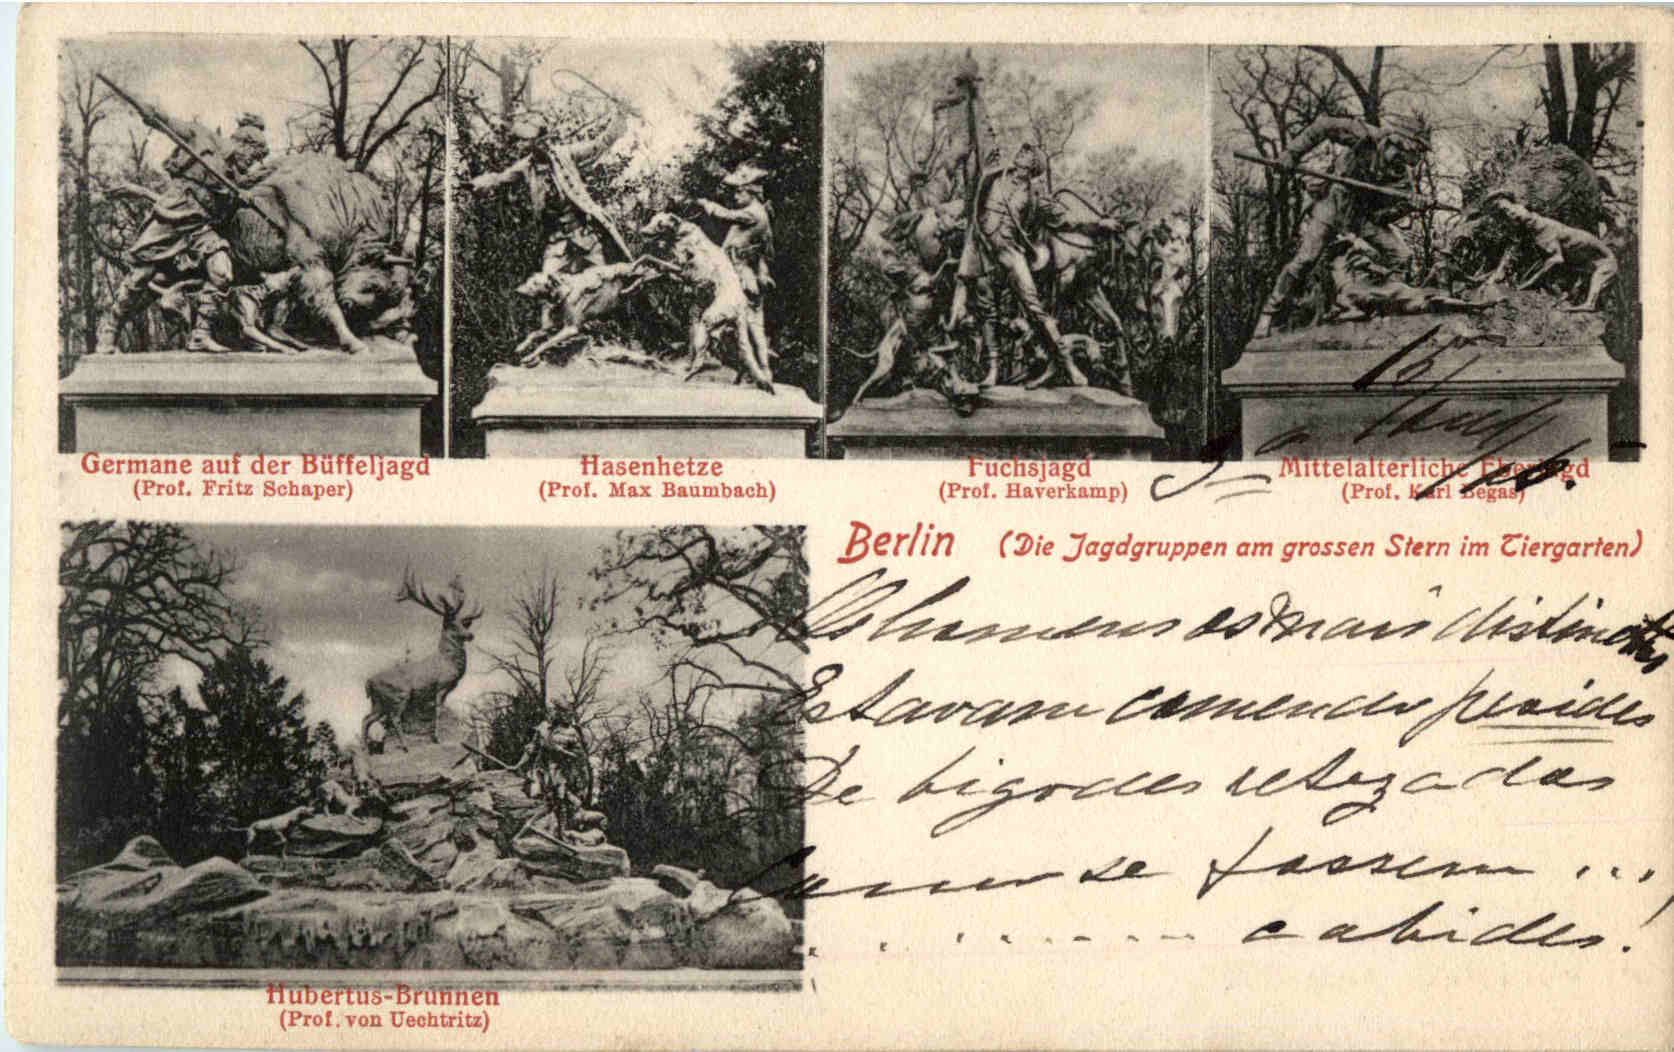 Germane auf der Büffeljagd
(Prof. Fritz Schaper)
Hasenhetze
(Prof. Max Baumbach)
Fuchsjagd
(Prof. Haverkamp)
Mittelalterliche Eberjagd
(Prof. Karl Begas)
Berlin (Die Jagdgruppen am grossen Stern im Tiergarten)
Os homens os mais distinctos
Estavam comendo
De bigodes retezados
Como se fossem ...
cabides.
Hubertus-Brunnen
(Prof. von Uechtritz)